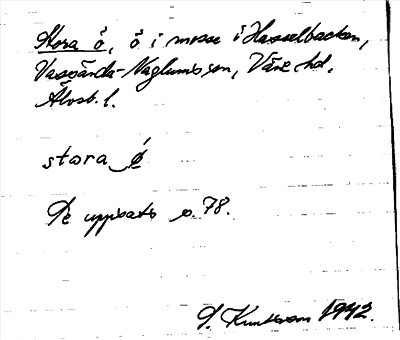 Stora ö, ö i mosse i Hasselbacken,
Vassända-Naglums sn, Väne hd,
Älvsb. l.
stora ö
Se uppsats s. 78.
Knutsson 1942.